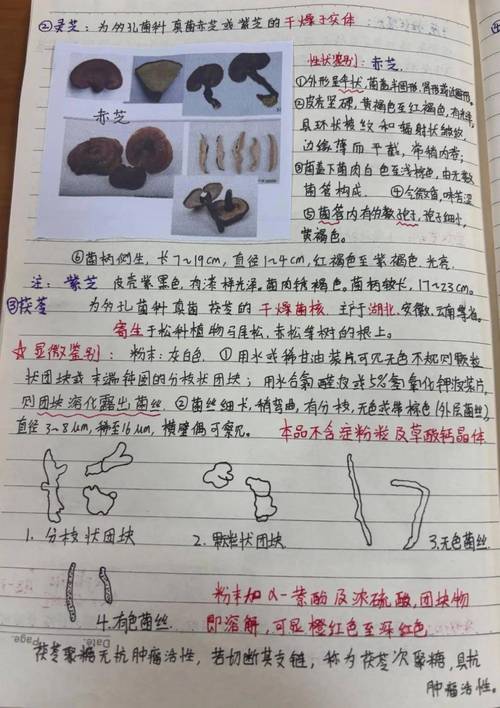 ②灵芝：为多孔菌科真菌赤芝或紫芝的干燥子实体：
性状鉴别：赤芝.
赤芝
①外形呈伞状，菌盖半圆形，肾形或近圆形。
②皮壳坚硬，黄褐色至红褐色，有光泽，
具环状棱纹和辐射状皱纹，
边缘薄而平截，常稍内卷；
③菌盖下菌肉白色至浅棕色，由无数
菌管构成。 ④气微香，味苦涩
⑤菌管内有多数孢子，孢子细小，
黄褐色。
⑥菌柄侧生，长7~19cm，直径1~4cm，红褐色至紫褐色，光亮.
注：紫芝 皮壳紫黑色，有漆样光泽。菌肉锈褐色。菌柄较长，17~23cm。
③茯苓 为多孔菌科真菌茯苓的干燥菌核。主产于湖北，安徽，云南等省。
寄生于松科植物马尾松，赤松等树的根上。
☆显微鉴别：粉末：灰白色。①用水或稀甘油装片可见无色不规则颗粒
状团块或末端钝圆的分枝状团块；用水合氯醛液或5%氢氧化钾液装片，
则团块溶化露出菌丝。②菌丝细长，稍弯曲，有分枝，无色或带棕色(外层菌丝)，
直径3~8μm，稀至16μm，横壁偶可察见。 本品不含淀粉粒及草酸钙晶体
1. 分枝状团块 2. 颗粒状团块 3.无色菌丝.
粉末加α-萘酚及浓硫酸，团块物
4.有色菌丝. 即溶解，可显橙红色至深红色.
Date. Page.
茯苓聚糖无抗肿瘤活性，若切断其支链，称为茯苓次聚糖，具抗
肿瘤活性。